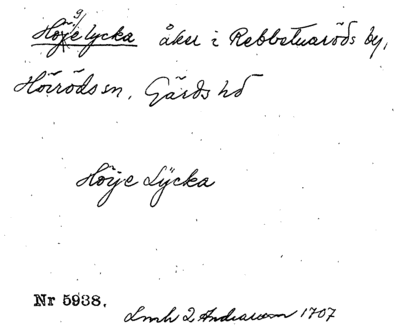 Högelycka åker i Rebbetuaröds by,
Hörröds sn, Gärds hd
Höije Lÿcka
Nr 5938.
Lmh 2 Andrarum 1707